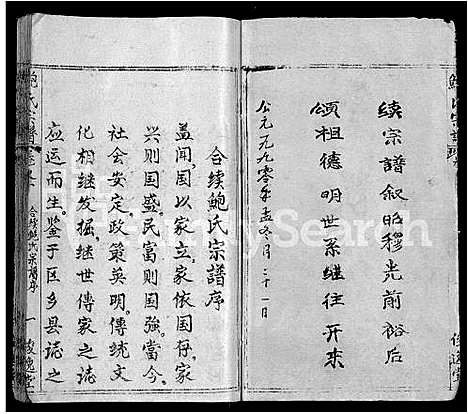 续宗譜叙昭穆光前裕后
颂祖德明世系继往开来
公元一九九0年孟冬月三十一日
合续鲍氏宗譜序
盖闻,国以家立,家依国存,家
兴则国盛,民富则国強。當今,
社会安定政策英明。傳統文
化相继发掘。继世傳家之誌
应运而生。鉴于区乡县誌之
鲍氏宗譜
合续鲍氏宗譜序
一
FamilySearch